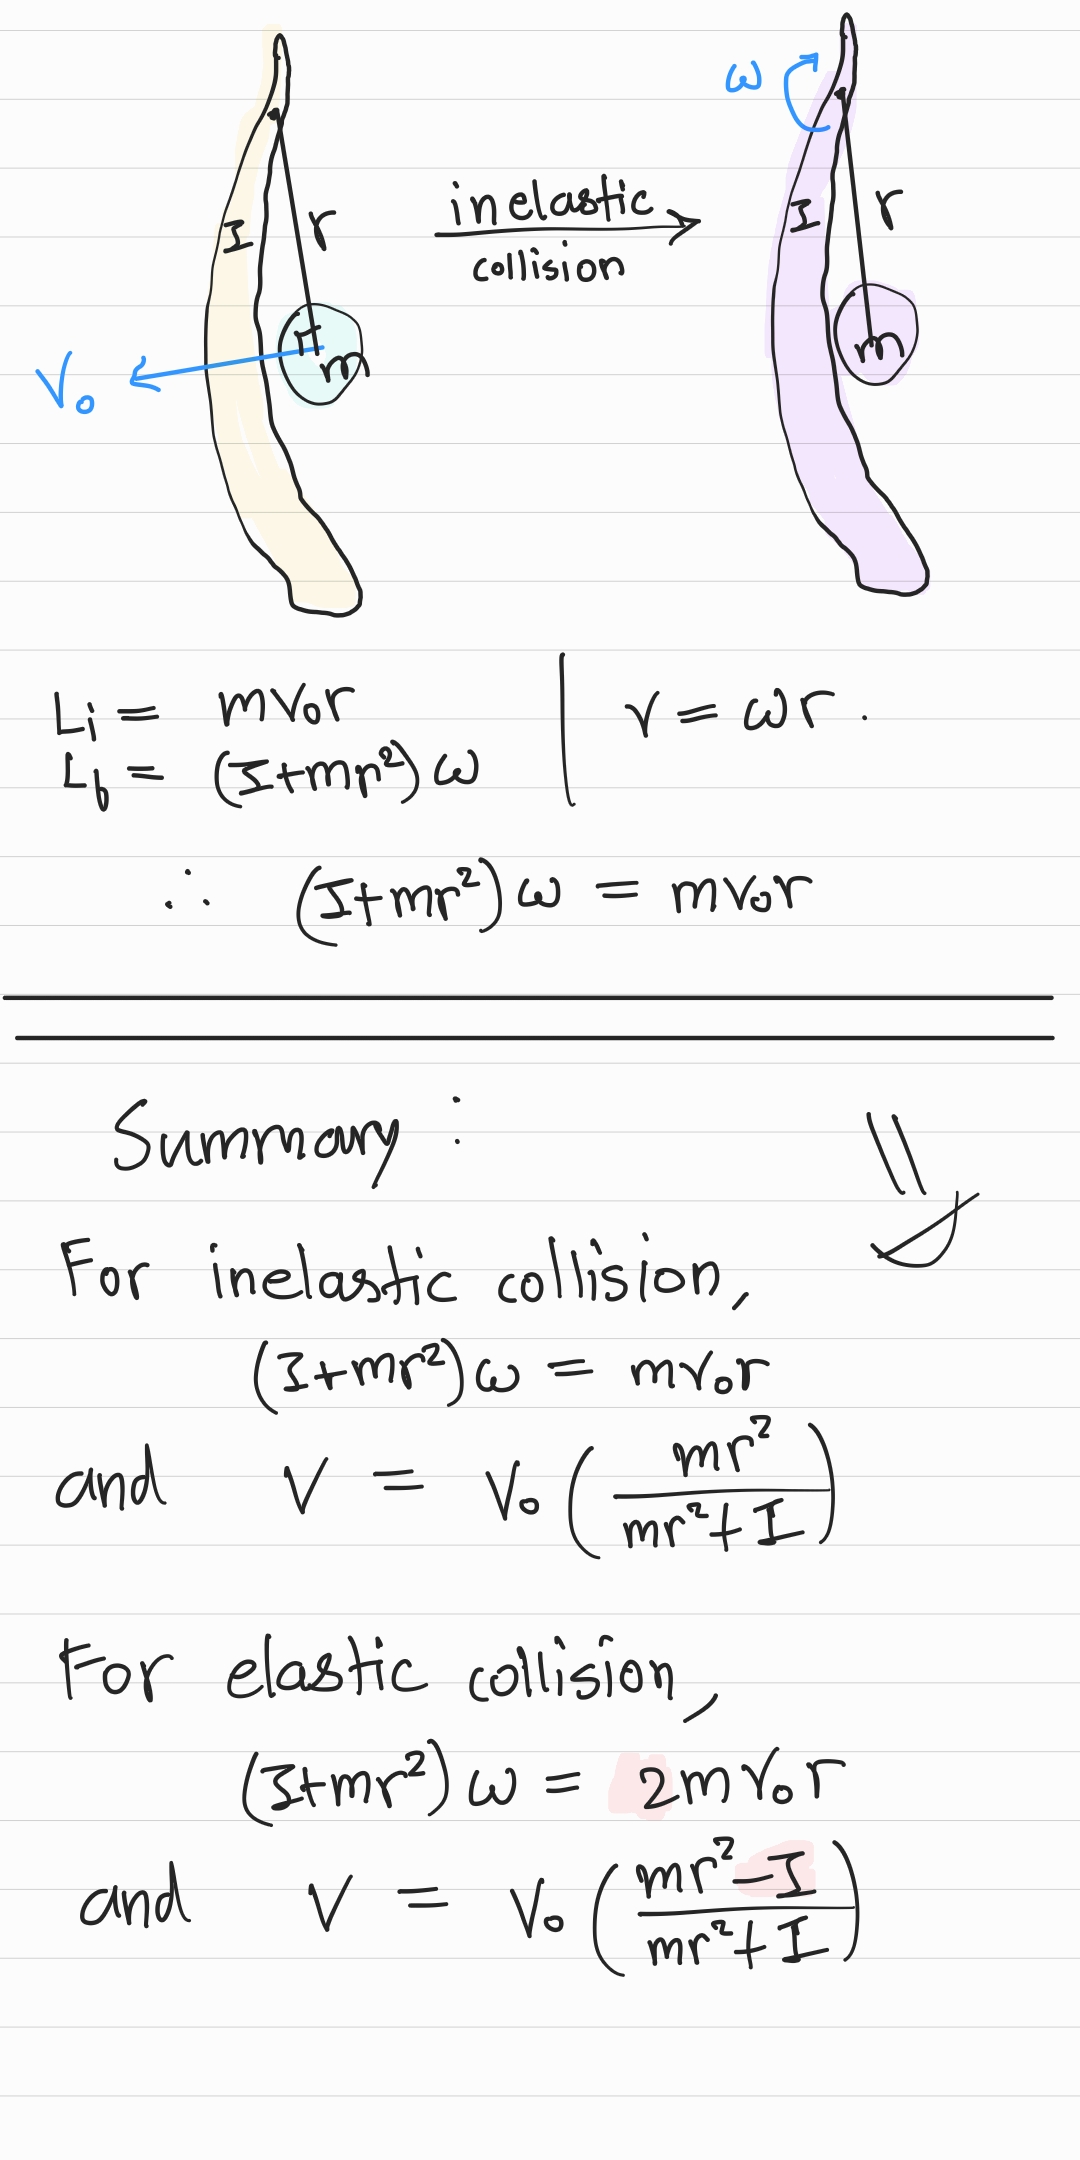 ω
I r I r
inelastic
collision
m m
V₀
Lᵢ = mv₀r | v = ωr.
L_f = (I+mr²)ω
∴ (I+mr²)ω = mv₀r
Summary :
For inelastic collision,
(I+mr²)ω = mv₀r
and V = V₀ (mr² / mr²+I)
For elastic collision,
(I+mr²)ω = 2mv₀r
and V = V₀ (mr²-I / mr²+I)